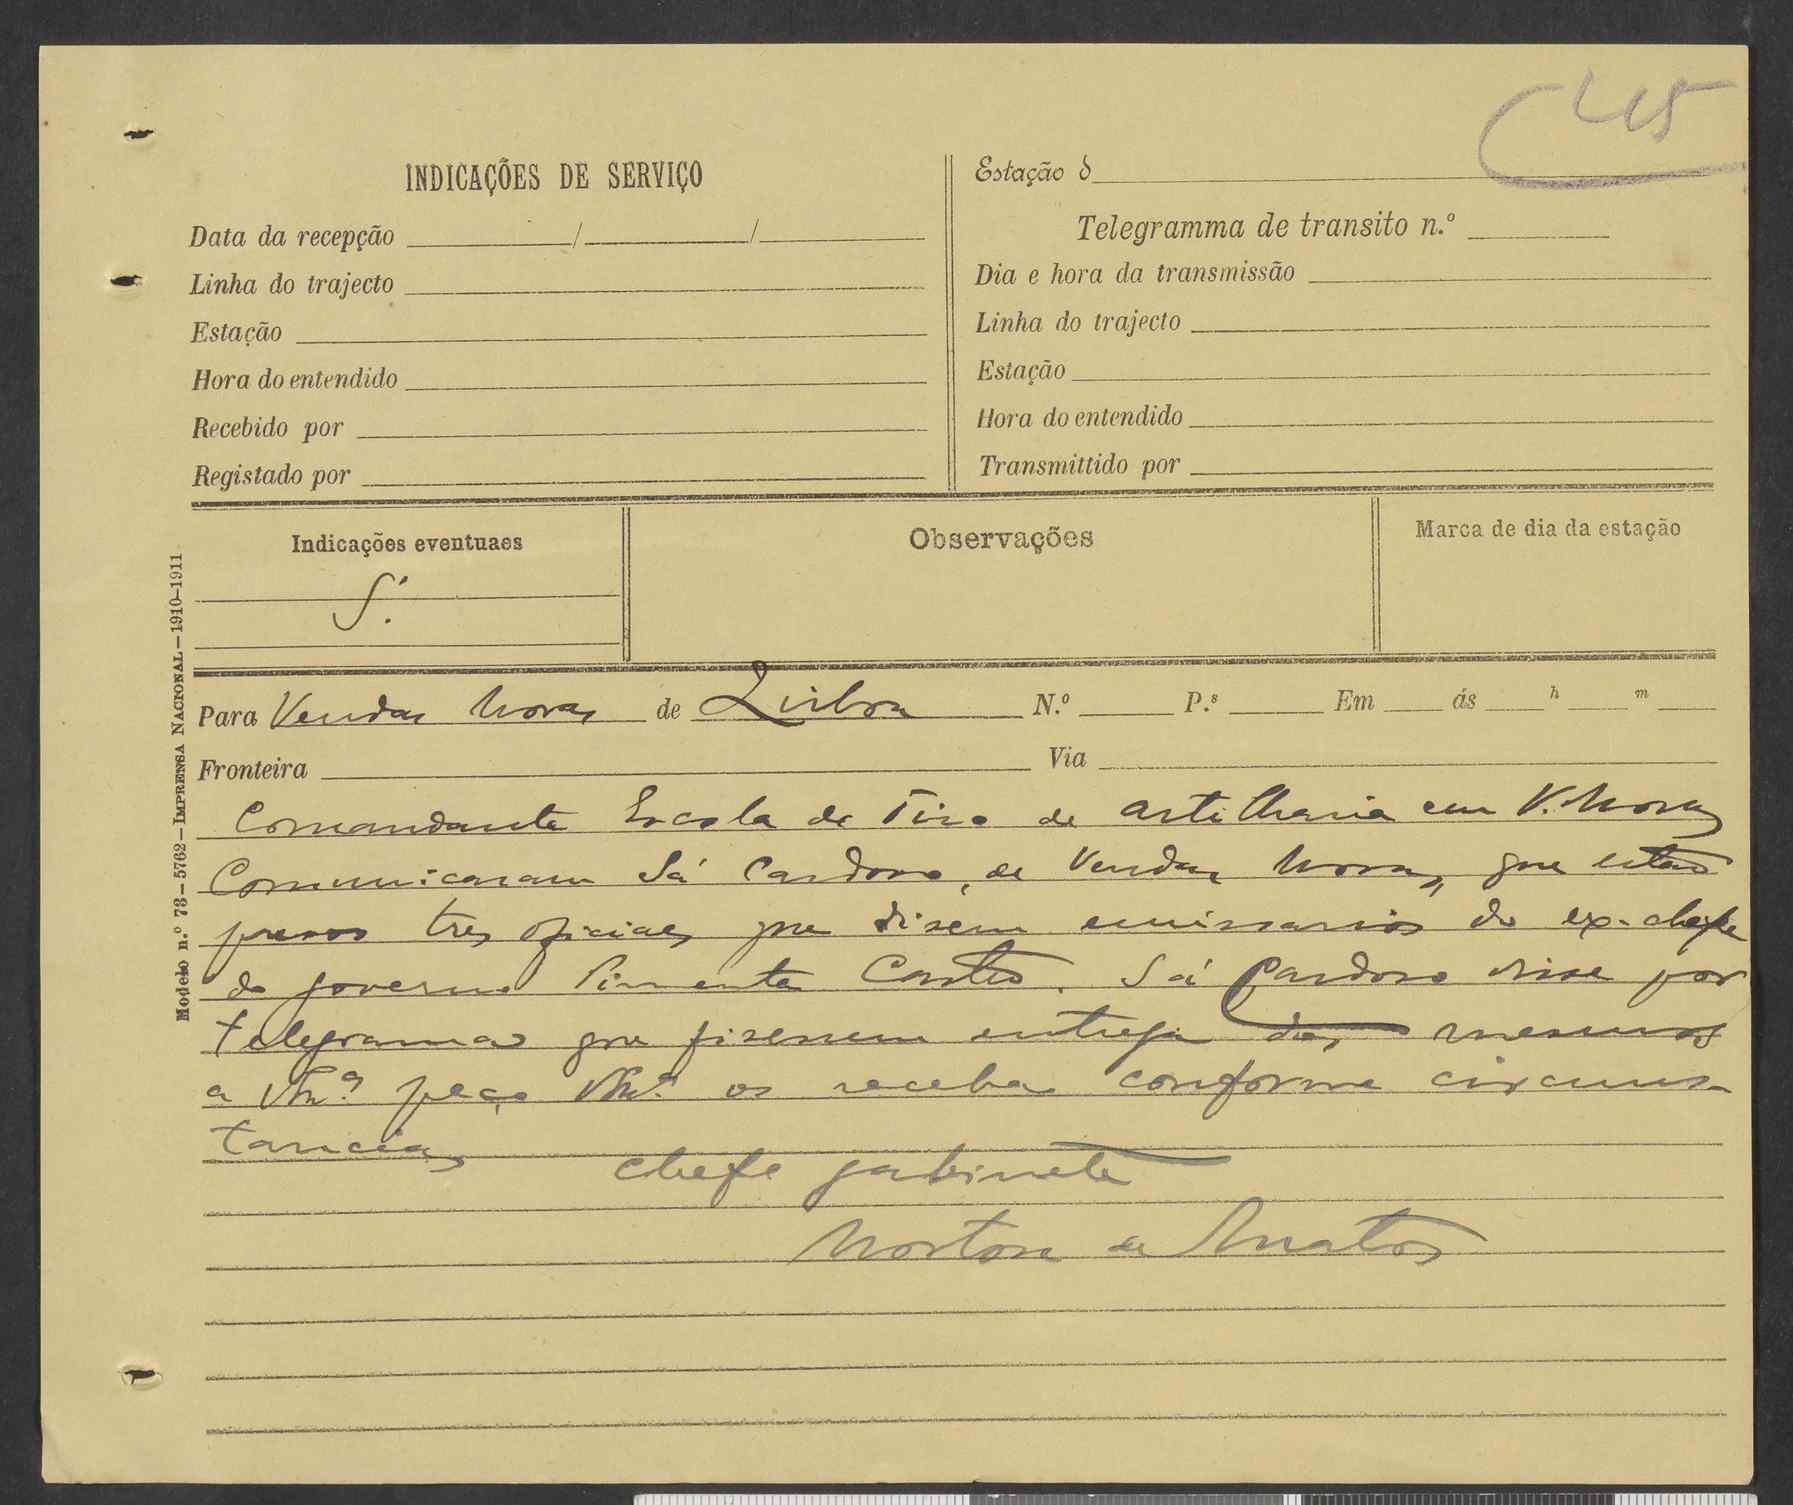 45
INDICAÇÕES DE SERVIÇO
Data da recepção / /
Linha do trajecto
Estação
Hora do entendido
Recebido por
Registado por
Estação d
Telegramma de transito n.º
Dia e hora da transmissão
Linha do trajecto
Estação
Hora do entendido
Transmittido por
Indicações eventuaes
S.
Observações
Marca de dia da estação
Modelo n.º 73 — 5762 — IMPRENSA NACIONAL — 1910-1911
Para Vendas Novas de Lisboa N.º P.s Em ás h m
Fronteira Via
Comandante Escola de Tiro de artilharia em V. Novas
Comunicaram Sá Cardoso, de Vendas Novas, que estão
presos tres oficiaes que disem emissarios do ex-chefe
do governo Pimenta Castro. Sá Cardoso disse por
telegrama que fisessem entrega dos mesmos
a V. Ex.ª peço V. Ex.ª os receba conforme circuns-
tancias
chefe gabinete
Norton de Matos